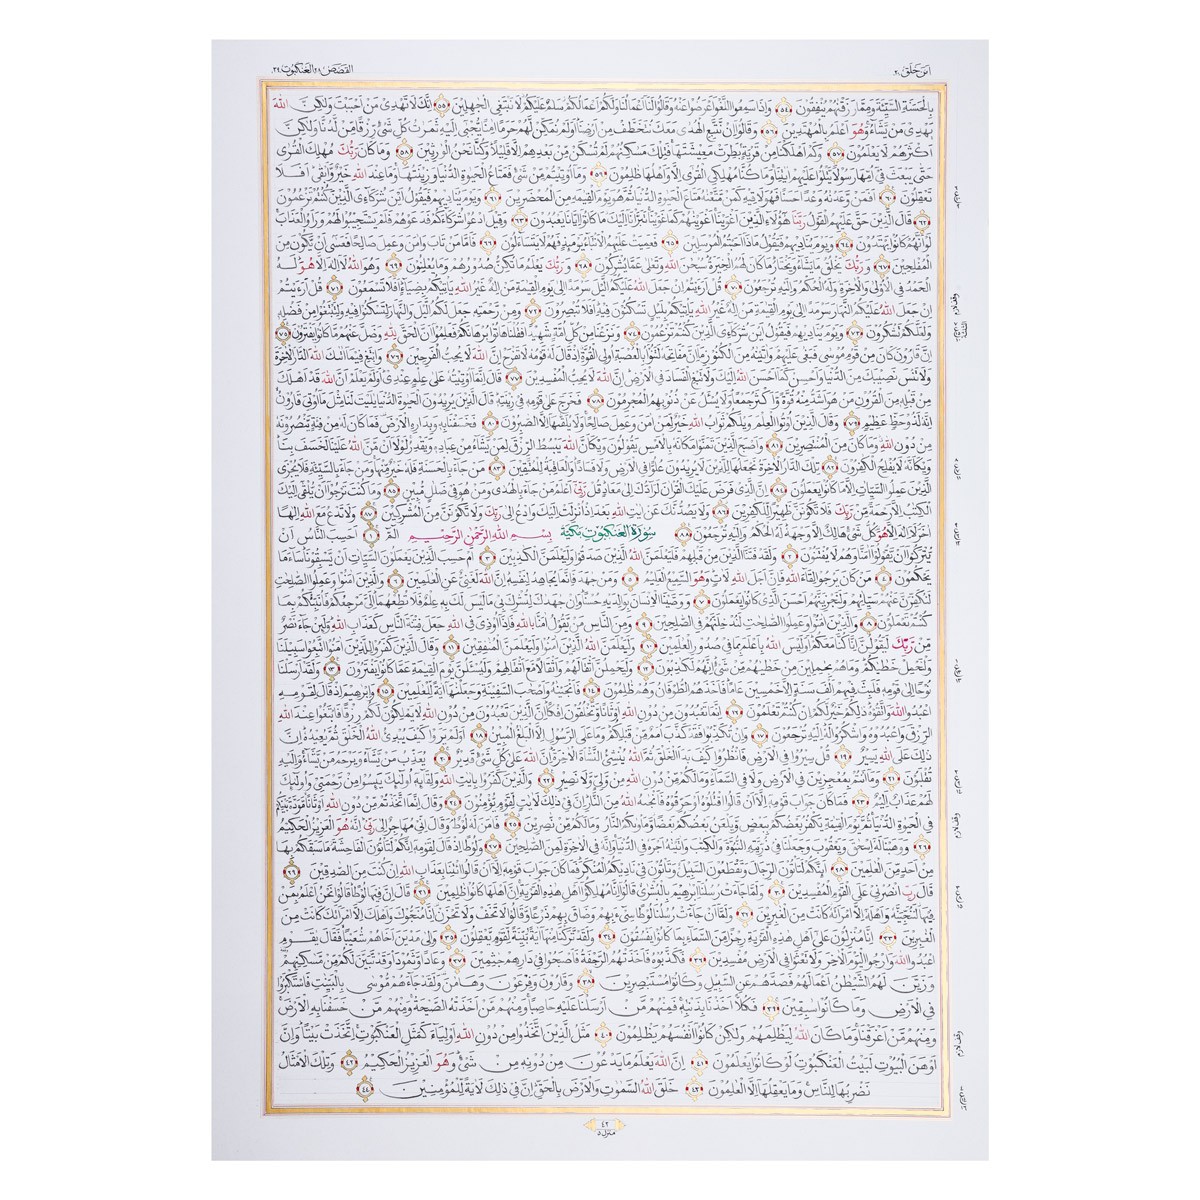 امن خلق ٢٠
القصص ٢٨ العنكبوت ٢٩
بالحسنة السيئة ومما رزقنهم ينفقون ٥٤ واذا سمعوا اللغو اعرضوا عنه وقالوا لنا اعمالنا ولكم اعمالكم سلم عليكم لا نبتغي الجهلين ٥٥ انك لا تهدي من احببت ولكن الله
يهدي من يشاء وهو اعلم بالمهتدين ٥٦ وقالوا ان نتبع الهدى معك نتخطف من ارضنا اولم نمكن لهم حرما امنا يجبى اليه ثمرت كل شيء رزقا من لدنا ولكن
اكثرهم لا يعلمون ٥٧ وكم اهلكنا من قرية بطرت معيشتها فتلك مسكنهم لم تسكن من بعدهم الا قليلا وكنا نحن الورثين ٥٨ وما كان ربك مهلك القرى
حتى يبعث في امها رسولا يتلوا عليهم ايتنا وما كنا مهلكي القرى الا واهلها ظلمون ٥٩ وما اوتيتم من شيء فمتاع الحيوة الدنيا وزينتها وما عند الله خير وابقى افلا
تعقلون ٦٠ افمن وعدنه وعدا حسنا فهو لاقيه كمن متعنه متاع الحيوة الدنيا ثم هو يوم القيمة من المحضرين ٦١ ويوم يناديهم فيقول اين شركاءي الذين كنتم تزعمون
٦٢ قال الذين حق عليهم القول ربنا هؤلاء الذين اغوينا اغوينهم كما غوينا تبرانا اليك ما كانوا ايانا يعبدون ٦٣ وقيل ادعوا شركاءكم فدعوهم فلم يستجيبوا لهم وراوا العذاب
لو انهم كانوا يهتدون ٦٤ ويوم يناديهم فيقول ماذا اجبتم المرسلين ٦٥ فعميت عليهم الانباء يومئذ فهم لا يتساءلون ٦٦ فاما من تاب وامن وعمل صالحا فعسى ان يكون من
المفلحين ٦٧ وربك يخلق ما يشاء ويختار ما كان لهم الخيرة سبحن الله وتعلى عما يشركون ٦٨ وربك يعلم ما تكن صدورهم وما يعلنون ٦٩ وهو الله لا اله الا هو له
الحمد في الاولى والاخرة وله الحكم واليه ترجعون ٧٠ قل ارءيتم ان جعل الله عليكم اليل سرمدا الى يوم القيمة من اله غير الله ياتيكم بضياء افلا تسمعون ٧١ قل ارءيتم
ان جعل الله عليكم النهار سرمدا الى يوم القيمة من اله غير الله ياتيكم بليل تسكنون فيه افلا تبصرون ٧٢ ومن رحمته جعل لكم اليل والنهار لتسكنوا فيه ولتبتغوا من فضله
ولعلكم تشكرون ٧٣ ويوم يناديهم فيقول اين شركاءي الذين كنتم تزعمون ٧٤ ونزعنا من كل امة شهيدا فقلنا هاتوا برهانكم فعلموا ان الحق لله وضل عنهم ما كانوا يفترون ٧٥
ان قارون كان من قوم موسى فبغى عليهم واتينه من الكنوز ما ان مفاتحه لتنوا بالعصبة اولي القوة اذ قال له قومه لا تفرح ان الله لا يحب الفرحين ٧٦ وابتغ فيما اتىك الله الدار الاخرة
ولا تنس نصيبك من الدنيا واحسن كما احسن الله اليك ولا تبغ الفساد في الارض ان الله لا يحب المفسدين ٧٧ قال انما اوتيته على علم عندي اولم يعلم ان الله قد اهلك
من قبله من القرون من هو اشد منه قوة واكثر جمعا ولا يسئل عن ذنوبهم المجرمون ٧٨ فخرج على قومه في زينته قال الذين يريدون الحيوة الدنيا يليت لنا مثل ما اوتي قارون
انه لذو حظ عظيم ٧٩ وقال الذين اوتوا العلم ويلكم ثواب الله خير لمن امن وعمل صالحا ولا يلقىها الا الصبرون ٨٠ فخسفنا به وبداره الارض فما كان له من فئة ينصرونه
من دون الله وما كان من المنتصرين ٨١ واصبح الذين تمنوا مكانه بالامس يقولون ويكان الله يبسط الرزق لمن يشاء من عباده ويقدر لولا ان من الله علينا لخسف بنا
ويكانه لا يفلح الكفرون ٨٢ تلك الدار الاخرة نجعلها للذين لا يريدون علوا في الارض ولا فسادا والعاقبة للمتقين ٨٣ من جاء بالحسنة فله خير منها ومن جاء بالسيئة فلا يجزى
الذين عملوا السيات الا ما كانوا يعملون ٨٤ ان الذي فرض عليك القران لرادك الى معاد قل ربي اعلم من جاء بالهدى ومن هو في ضلل مبين ٨٥ وما كنت ترجوا ان يلقى اليك
الكتب الا رحمة من ربك فلا تكونن ظهيرا للكفرين ٨٦ ولا يصدنك عن ايت الله بعد اذ انزلت اليك وادع الى ربك ولا تكونن من المشركين ٨٧ ولا تدع مع الله الها
اخر لا اله الا هو كل شيء هالك الا وجهه له الحكم واليه ترجعون ٨٨ سورة العنكبوت مكية بسم الله الرحمن الرحيم الم ١ احسب الناس ان
يتركوا ان يقولوا امنا وهم لا يفتنون ٢ ولقد فتنا الذين من قبلهم فليعلمن الله الذين صدقوا وليعلمن الكذبين ٣ ام حسب الذين يعملون السيات ان يسبقونا ساء ما
يحكمون ٤ من كان يرجوا لقاء الله فان اجل الله لات وهو السميع العليم ٥ ومن جهد فانما يجاهد لنفسه ان الله لغني عن العلمين ٦ والذين امنوا وعملوا الصلحت
لنكفرن عنهم سياتهم ولنجزينهم احسن الذي كانوا يعملون ٧ ووصينا الانسان بوالديه حسنا وان جهدك لتشرك بي ما ليس لك به علم فلا تطعهما الي مرجعكم فانبئكم بما
كنتم تعملون ٨ والذين امنوا وعملوا الصلحت لندخلنهم في الصلحين ٩ ومن الناس من يقول امنا بالله فاذا اوذي في الله جعل فتنة الناس كعذاب الله ولئن جاء نصر
من ربك ليقولن انا كنا معكم اوليس الله باعلم بما في صدور العلمين ١٠ وليعلمن الله الذين امنوا وليعلمن المنفقين ١١ وقال الذين كفروا للذين امنوا اتبعوا سبيلنا
ولنحمل خطيكم وما هم بحملين من خطيهم من شيء انهم لكذبون ١٢ وليحملن اثقالهم واثقالا مع اثقالهم وليسئلن يوم القيمة عما كانوا يفترون ١٣ ولقد ارسلنا
نوحا الى قومه فلبث فيهم الف سنة الا خمسين عاما فاخذهم الطوفان وهم ظلمون ١٤ فانجينه واصحب السفينة وجعلنها اية للعلمين ١٥ وابرهيم اذ قال لقومه
اعبدوا الله واتقوه ذلكم خير لكم ان كنتم تعلمون ١٦ انما تعبدون من دون الله اوثانا وتخلقون افكا ان الذين تعبدون من دون الله لا يملكون لكم رزقا فابتغوا عند الله
الرزق واعبدوه واشكروا له اليه ترجعون ١٧ وان تكذبوا فقد كذب امم من قبلكم وما على الرسول الا البلغ المبين ١٨ اولم يروا كيف يبدئ الله الخلق ثم يعيده ان
ذلك على الله يسير ١٩ قل سيروا في الارض فانظروا كيف بدا الخلق ثم الله ينشئ النشاة الاخرة ان الله على كل شيء قدير ٢٠ يعذب من يشاء ويرحم من يشاء واليه
تقلبون ٢١ وما انتم بمعجزين في الارض ولا في السماء وما لكم من دون الله من ولي ولا نصير ٢٢ والذين كفروا بايت الله ولقائه اولئك يئسوا من رحمتي واولئك
لهم عذاب اليم ٢٣ فما كان جواب قومه الا ان قالوا اقتلوه او حرقوه فانجىه الله من النار ان في ذلك لايت لقوم يؤمنون ٢٤ وقال انما اتخذتم من دون الله اوثانا مودة بينكم
في الحيوة الدنيا ثم يوم القيمة يكفر بعضكم ببعض ويلعن بعضكم بعضا وماوىكم النار وما لكم من نصرين ٢٥ فامن له لوط وقال اني مهاجر الى ربي انه هو العزيز الحكيم
٢٦ ووهبنا له اسحق ويعقوب وجعلنا في ذريته النبوة والكتب واتينه اجره في الدنيا وانه في الاخرة لمن الصلحين ٢٧ ولوطا اذ قال لقومه انكم لتاتون الفاحشة ما سبقكم بها
من احد من العلمين ٢٨ ائنكم لتاتون الرجال وتقطعون السبيل وتاتون في ناديكم المنكر فما كان جواب قومه الا ان قالوا ائتنا بعذاب الله ان كنت من الصدقين ٢٩
قال رب انصرني على القوم المفسدين ٣٠ ولما جاءت رسلنا ابرهيم بالبشرى قالوا انا مهلكوا اهل هذه القرية ان اهلها كانوا ظلمين ٣١ قال ان فيها لوطا قالوا نحن اعلم بمن
فيها لننجينه واهله الا امراته كانت من الغبرين ٣٢ ولما ان جاءت رسلنا لوطا سيء بهم وضاق بهم ذرعا وقالوا لا تخف ولا تحزن انا منجوك واهلك الا امراتك كانت من
الغبرين ٣٣ انا منزلون على اهل هذه القرية رجزا من السماء بما كانوا يفسقون ٣٤ ولقد تركنا منها اية بينة لقوم يعقلون ٣٥ والى مدين اخاهم شعيبا فقال يقوم
اعبدوا الله وارجوا اليوم الاخر ولا تعثوا في الارض مفسدين ٣٦ فكذبوه فاخذتهم الرجفة فاصبحوا في دارهم جثمين ٣٧ وعادا وثمودا وقد تبين لكم من مسكنهم
وزين لهم الشيطن اعمالهم فصدهم عن السبيل وكانوا مستبصرين ٣٨ وقارون وفرعون وهامن ولقد جاءهم موسى بالبينت فاستكبروا
في الارض وما كانوا سبقين ٣٩ فكلا اخذنا بذنبه فمنهم من ارسلنا عليه حاصبا ومنهم من اخذته الصيحة ومنهم من خسفنا به الارض
ومنهم من اغرقنا وما كان الله ليظلمهم ولكن كانوا انفسهم يظلمون ٤٠ مثل الذين اتخذوا من دون الله اولياء كمثل العنكبوت اتخذت بيتا وان
اوهن البيوت لبيت العنكبوت لو كانوا يعلمون ٤١ ان الله يعلم ما يدعون من دونه من شيء وهو العزيز الحكيم ٤٢ وتلك الامثال
نضربها للناس وما يعقلها الا العلمون ٤٣ خلق الله السموت والارض بالحق ان في ذلك لاية للمؤمنين ٤٤
٤٢
منزل ٥